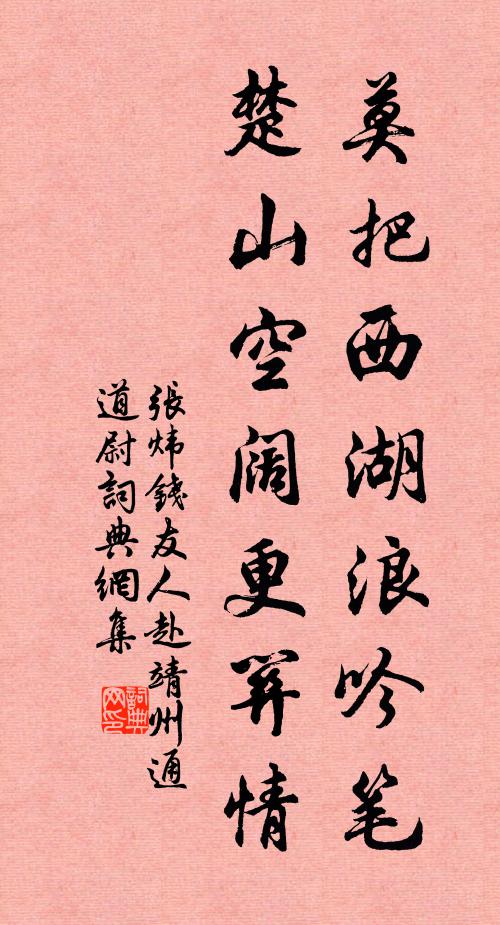 莫把西湖浪吟笔
楚山空阔更关情
張炜錢友人赴靖州通
道尉詞典網集
詞典
网印